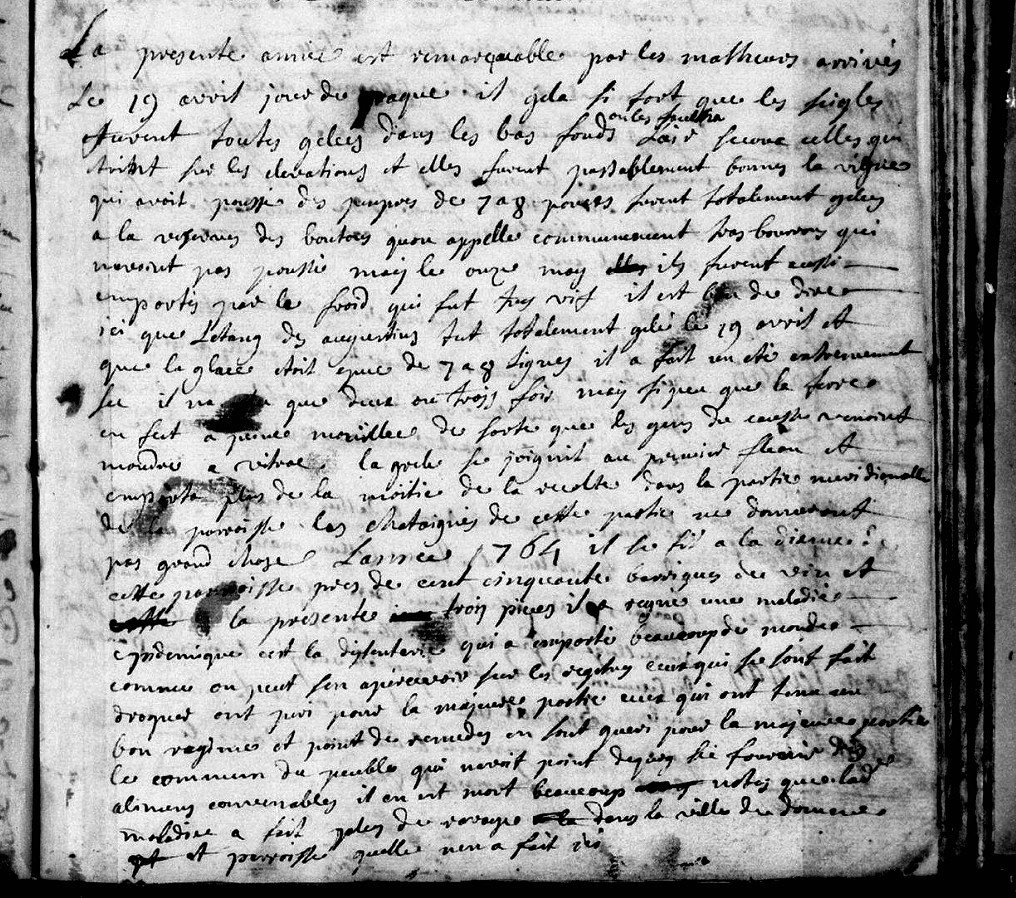 La presente année est remarquable par les malheurs arrivés
Le 19 avril jour de paque il gela si fort que les seigles
furent toutes gelées dans les bas fonds celles qui
sur les elevations et elles furent passablement bonnes la vigne
qui avoit poussé des pampres de 7 a 8 pouces furent totalement gelées
a la reserve des boutons quon appelle communement bourrons qui
navoint pas poussé mais le onze may ils furent aussi
emportés par le froid qui fut tres vif il est bon de dire
ici que Letang des augustins fut totalement gelé le 19 avril et
que la glace etoit epece de 7 a 8 lignes il a fait un eté extremement
sec il na plu que deux ou trois fois mais si peu que la terre
en fut a peine mouillee de sorte que les gens de venoint
moudre a vitrac la grele se joignit au premier fleau et
emporta plus de la moitie de la recolte dans la partie meridionalle
de la parroisse las chataignes de cette partie ne donnerent
pas grand chose Lannee 1764 il se fit a la
cette parroisse pres de cent cinquante barriques de vin et
la presente trois pieces il a regné une maladie
epidemique cest la disenterie qui a emporté beaucoup de monde
comme on peut sen apercevoir sur les registres ceux qui se sont fait
droguer ont peri pour la majeure partie ceux qui ont tenu un
bon regime et point de remedes en sont gueris pour la majeure partie
le commun du peuble qui navoit point dequoy se fournir des
alimens convenables il en est mort beaucoup notés que lad
maladie a fait plus de ravage dans la ville de
et parroisse quelle nen a fait ici